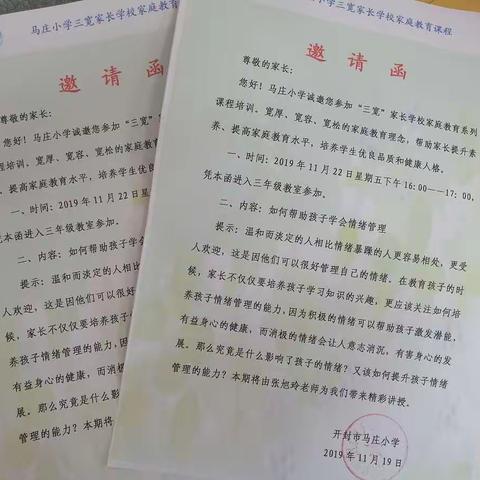 马庄小学三宽家长学校家庭教育
邀请函
尊敬的家长:
您好!马庄小学诚邀您参加“三宽”
程培训,宽厚、宽容、宽松的家庭
、提高家庭教育水平,培养学生优良
一、时间:2019年11月22日星
凭本函进入三年级教室参加。
二、内容:如何帮助孩子学会
提示:温和而淡定的人相比情
人欢迎,这是因他们可以很好
候,家长不仅仅要培养孩子学
养孩子情绪管理的能力,因
有益身心的健康,而消极
展。那么究竟是什么影
管理的能力?本期将
马庄小学三宽家长学校家庭教育课程
邀请函
尊敬的家长:
您好!马庄小学诚邀您参加“三宽”家长学校家庭教育系列
课程培训,宽厚、宽容、宽松的家庭教育理念,帮助家长提升素
养、提高家庭教育水平,培养学生优良品质和健康人格。
一、时间:2019年11月22日星期五下午16:00——17:00,
凭本函进入三年级教室参加。
二、内容:如何帮助孩子学会情绪管理
提示:温和而淡定的人相比情绪暴躁的人更容易相处,更受
人欢迎,这是因他们可以很好管理自己的情绪。在教育孩子的时
候,家长不仅仅要培养孩子学习知识的兴趣,更应该关注如何培
养孩子情绪管理的能力,因为积极的情绪可以帮助孩子激发潜能,
有益身心的健康,而消极的情绪会让人意志消沉,有害身心的发
展。那么究竟是什么影响了孩子的情绪?又该如何提升孩子情绪
管理的能力?本期将由张旭玲老师为我们带来精彩讲授。
开封市马庄小学
2019年11月19日